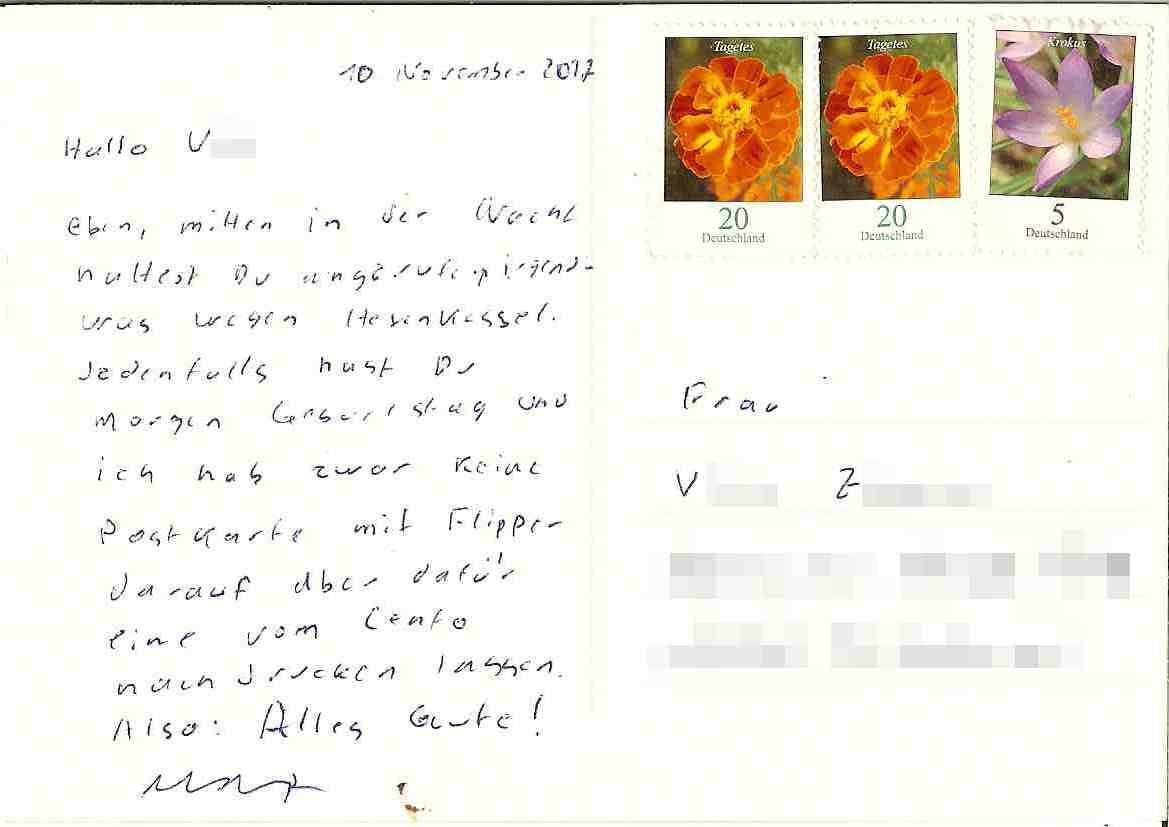 10 November 2017
Hallo V
Eben, mitten in der Nacht
hattest Du angerufen, irgend-
was wegen Hexenkessel.
Jedenfalls hast Du
Morgen Geburtstag und
ich hab zwar keine
Postkarte mit Flipper
darauf aber dafür
eine vom Cento
nachdrucken lassen.
Also: Alles Gute!
Tagetes
20
Deutschland
Tagetes
20
Deutschland
Krokus
5
Deutschland
Frau
V Z